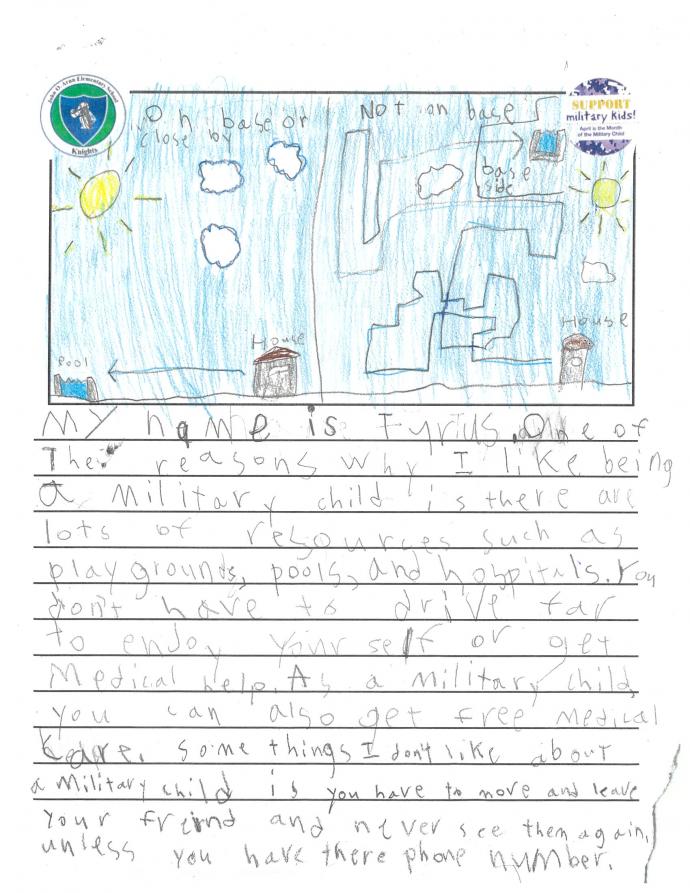 John O. Arnn Elementary School
Knights
SUPPORT
military kids!
April is the Month
of the Military Child
On base or
close by
Not on base
base
side
House
House
Pool
My name is Tyrius. One of
The reasons why I like being
a Military child is there are
lots of resources such as
playgrounds, pools, and hospitals. You
don't have to drive far
to enjoy your self or get
Medical help. As a military child
you can also get free medical
care. Some things I don't like about
a Military child is you have to move and leave
your friend and never see them again,
unless you have there phone number.